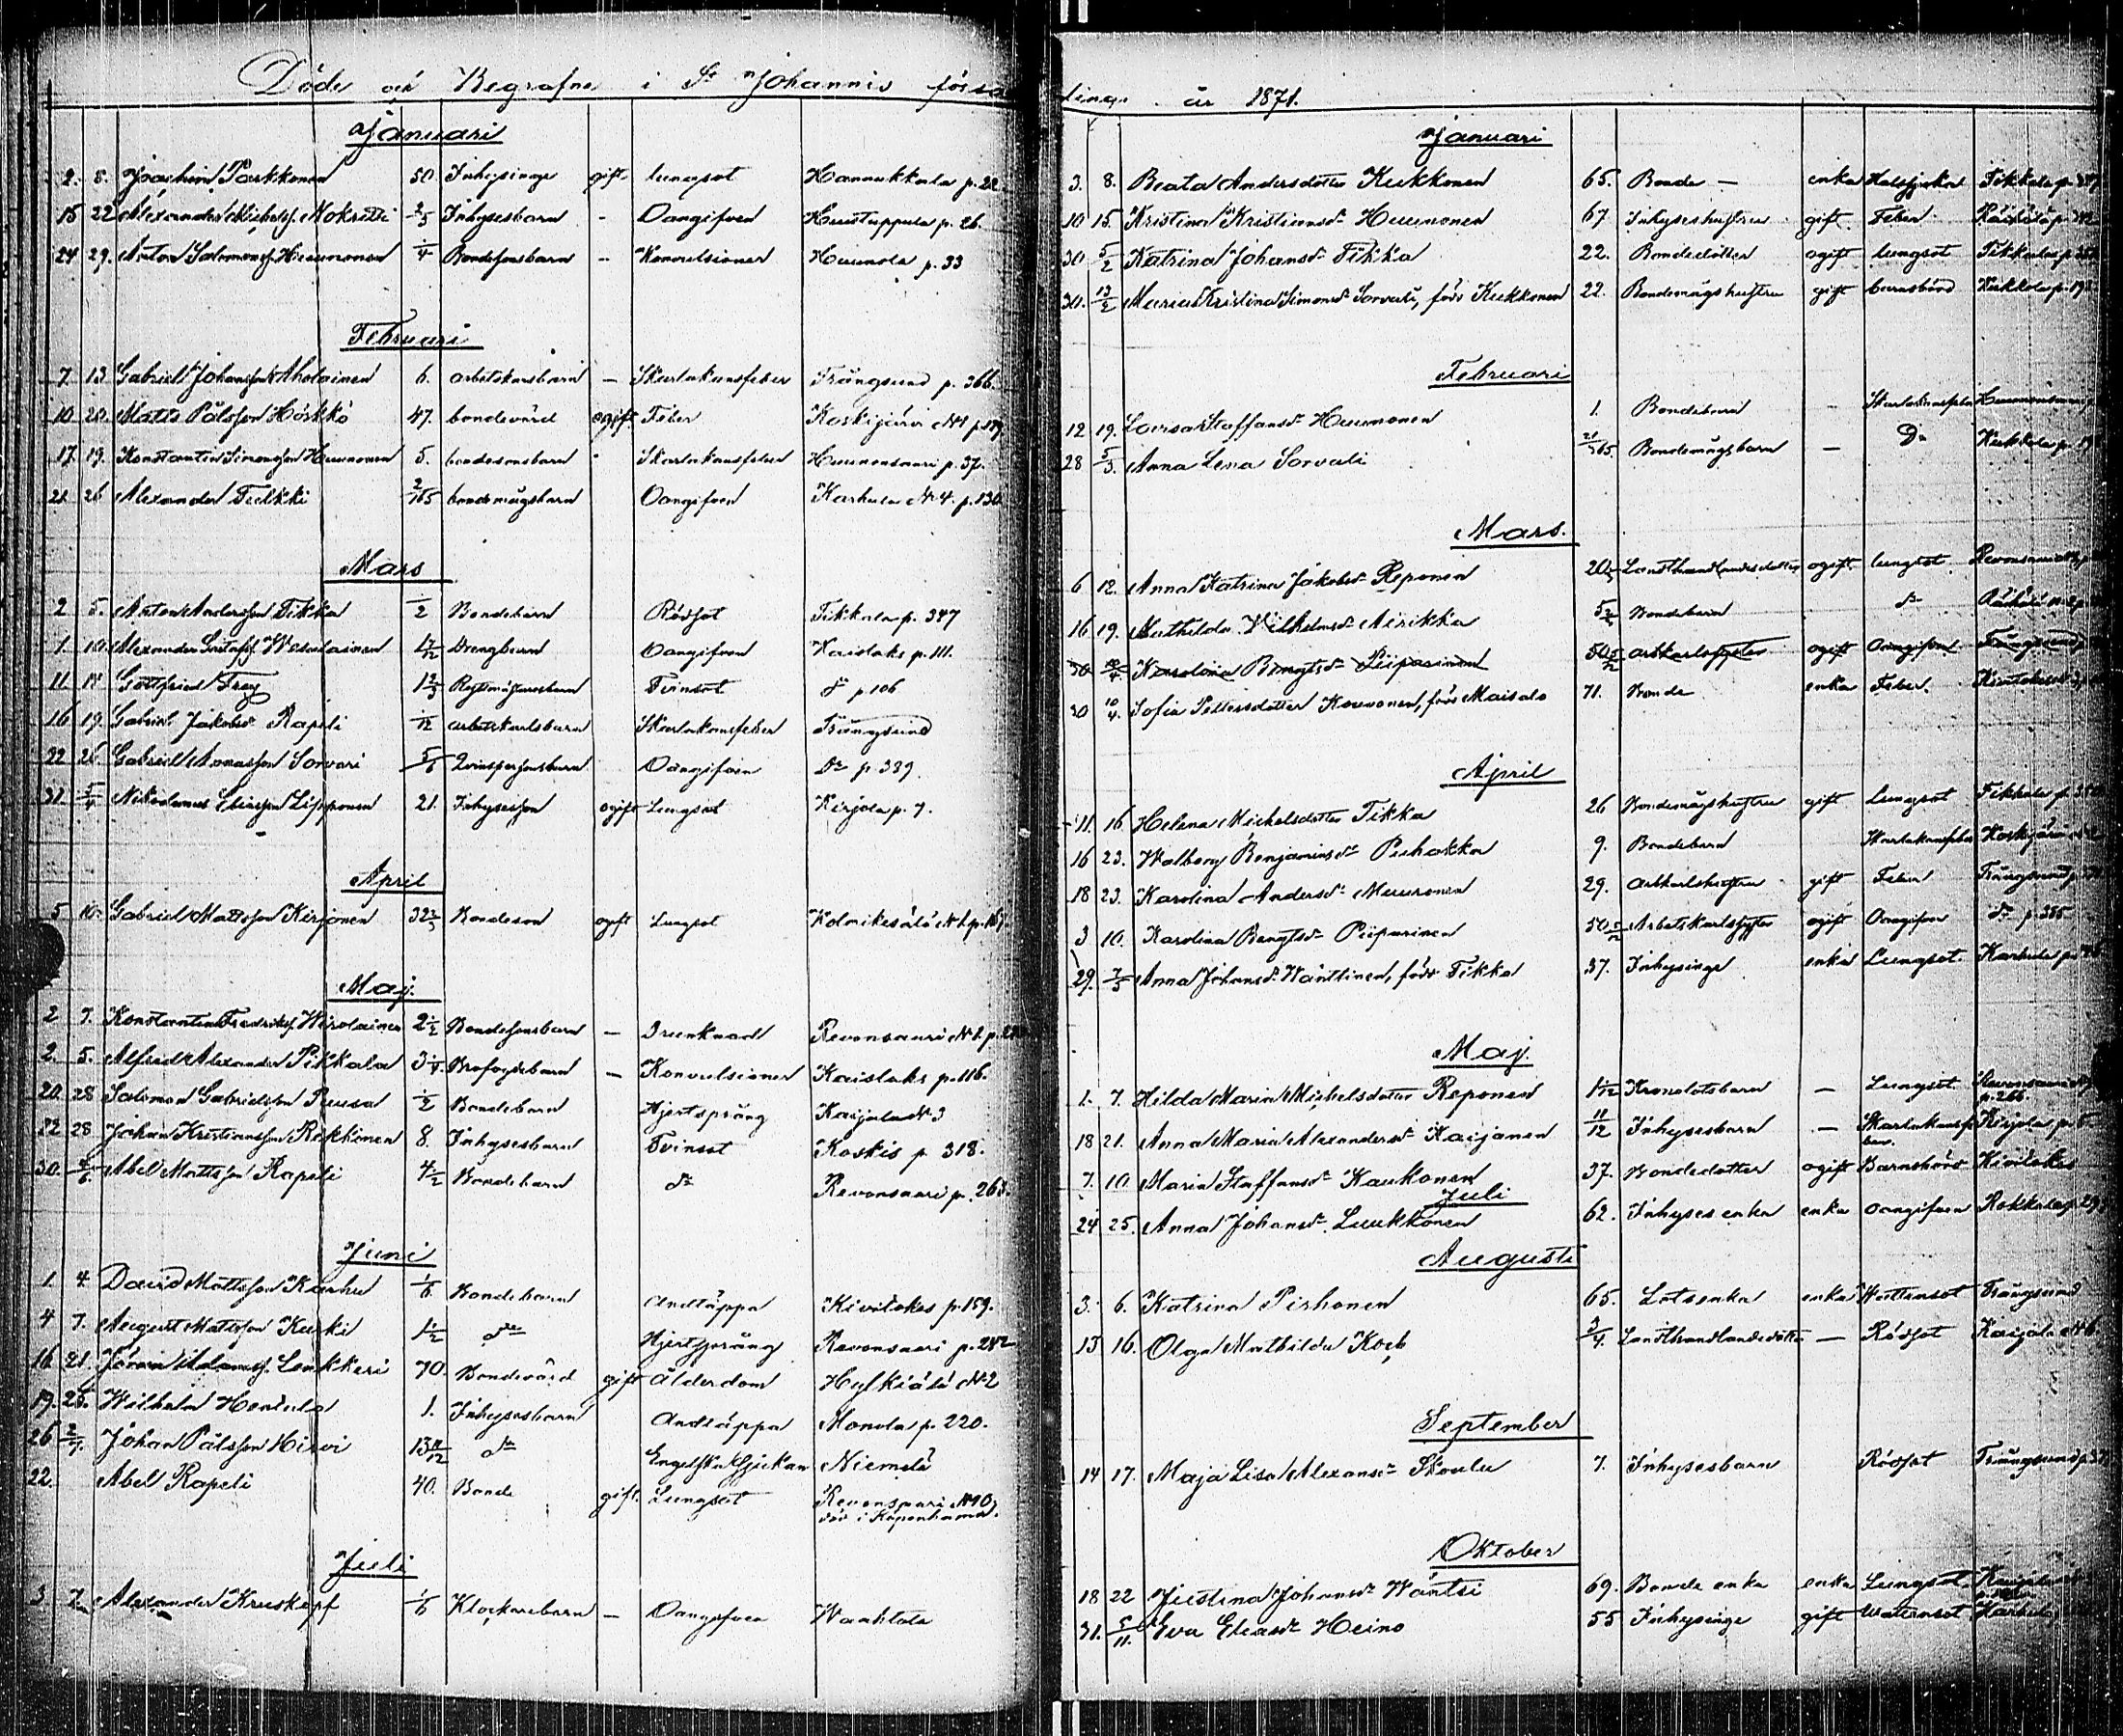 Döde och Begrafne i St Johannis försam
Januari
2. 8. Joachim Parkkonen 50 Inhysinge gift lungsot Hannukkala p. 22
15 22 Alexander Michelss. Mokratti 2/3 Inhysesbarn - Oangifven Huustuppula p. 26.
24. 29. Anton Salomonss. Huunonen 1/4 Bondesonsbarn - Konvulsioner Huunola p. 33
Februari
7. 13 Gabriel Johansson Aholainen 6. arbetskarlsbarn - Skarlakansfeber Trångsund p. 366.
10 20. Matts Pålsson Hörkkö 47. bondevärd ogift Feber Koskijärvi N1 p. 179
17. 19. Konstantin Simonsson Huunonen 5. bondesonsbarn - Skarlakansfeber Huunonsaari p. 37.
21. 26 Alexander Tulkki 2/365 bondemågsbarn Oangifven Karhula N. 4. p. 130
Mars
2 5. Anton Andersson Tikka 1/2 Bondebarn Rödsot Tikkala p. 347
1. 10. Alexander Gustafss. Wesalainen 1 7/12 Drengbarn Oangifven Kaislaks p. 111.
11. 17 Gottfried Frey 1 2/3 Tvinsot do p. 106
16 19. Gabriel Jakobsd. Rapeli 1/12 arbetskarlsbarn Skarlakansfeber Trångsund
22 26. Gabriel Annasson Sorvari 5/6 Qvinspersonsbarn Oangifven Do p. 389.
31. 5/4 Nikodemus Eliasson Lipponen 21. Inhysesson ogift Lungsot Kirjola p. 7.
April
5 10. Gabriel Mattsson Kirjonen 32 2/3 Bondeson ogift Lungsot Kolmikesälä N 1 p. 167.
Maj.
2 7. Konstantin Fredrikss. Wirolainen 2 1/2 Bondesonsbarn - Drunknad Revonsaari N. 1. p.
2. 5. Alfred Alexander Pikkala 3 1/4. Brofogdebarn - Konvulsioner Kaislaks p. 116.
20. 28 Salomon Gabrielsson Ruusa 1/2 Bondebarn Hjertsprång Kaijala N. 3
22 28 Johan Kristiansson Rokkonen 8. Inhysesbarn Tvinsot Koskis p 318.
30. 4/6 Abel Mattsson Rapeli 4 1/2 Bondebarn do Revonsaari p. 263.
Juni
1. 4. David Mattsson Karhu 1/6 Bondebarn Andtäppa Kiviloks p. 159.
4 7. August Mattsson Kurki 1 1/2 do Hjertsprång Revonsaari p. 282
16 21. Jöran Adamss. Lenkkeri 70. Bondevärd gift ålderdom Hylkiälä N. 2
19. 25. Wilhelm Hentula 1. Inhysesbarn Andtäppa Monola p. 220.
26 2/7. Johan Pålsson Hirvi 13 11/12 do Engelska sjukan Niemelä
22. Abel Rapeli 40. Bonde gift. Lungsot Revonsaari N 10;
död i Köpenhamn.
Juli
3 7. Alexander Kruskopf 1/6 Klockarebarn - Oangifven Waahtola
ling. år 1871.
Januari
3. 8. Beata Andersdotter Kukkonen 65. Bonde - enka Halssjukan Tikkala p.
10 15. Kristina Kristiansd. Huunonen 67. Inhyseshustru gift. Feber. p. 342
30 5/2 Katrina Johansd. Tikka 22. Bondedotter ogift lungsot Tikkala p.
30. 13/2 Maria Kristina Simonsd. Sorvali, född Kukkonen 22. Bondemågshustru gift barnsbörd Kukkola p. 19
Februari
12 19. Lovisa Staffansd. Huunonen 1. Bondebarn - Skarlakansfeber Huunonsaari
28 5/3 Anna Lena Sorvali 21/365. Bondemågsbarn - Do Kukkola p. 19
Mars.
6 12. Anna Katrina Jakobsd. Reponen 20 1/2 Landthandlandedotter ogift lungsot Revonsaari
16 19. Mathilda Wilhelmsd. Airikka 5 2/3 Bondebarn do
30 10/4 Karolina Bengtsd. Piiparinen 50 5/12 arbkarlsdotter ogift Oangifven Trångsund
30 10/4. Sofia Pettersdotter Kouvonen, född Maisala 71. Bonde enka Feber.
April
11. 16 Helena Michelsdotter Tikka 26 Bondemågshustru gift Lungsot Tikkala p.
16 23. Walborg Benjaminsd. Puhakka 9. Bondebarn Skarlakansfeber Koskijärvi
18 23. Karolina Andersd. Muuronen 29. arbkarlshustru gift Feber Trångsund p.
3 10. Karolina Bengtsd. Piiparinen 50 5/12 Arbetskarlsdotter ogift Oangifven do p. 385
29. 7/5 Anna Johansd. Wänttinen, född Tikka 37. Inhysinge enka Lungsot. Karhula p.
Maj.
1. 7. Hilda Maria Michelsdotter Reponen 1 1/12 Kronolotsbarn - Lungsot Revonsaari
p. 266.
18 21. Anna Maria Alexandersd. Kaijanen 11/12 Inhysesbarn - Skarlakansfe
ber. Kirjola p. 5.
7. 10. Maria Staffansd. Kaukonen 37. Bondedotter ogift Barnsbörd Kiviloks
Juli
24 25. Anna Johansd. Luukkonen 62. Inhyses enka enka oangifven Rokkala p. 29
Augusti
3. 6. Katrina Pirhonen 65. Lotsenka enka Wattensot Trångsund
13 16. Olga Mathilda Koch 3/4. Landthandlandedotter - Rödsot Kaijala N 6.
September
14 17. Maja Lisa Alexansd. Skoulu 7. Inhysesbarn Rödsot Trångsund p. 37
Oktober
18 22 Justina Johansd. Wäntsi 69. Bonde enka enka Lungsot
31. 5/11. Eva Eliasd. Heino 55 Inhysinge gift Wattensot Karhula